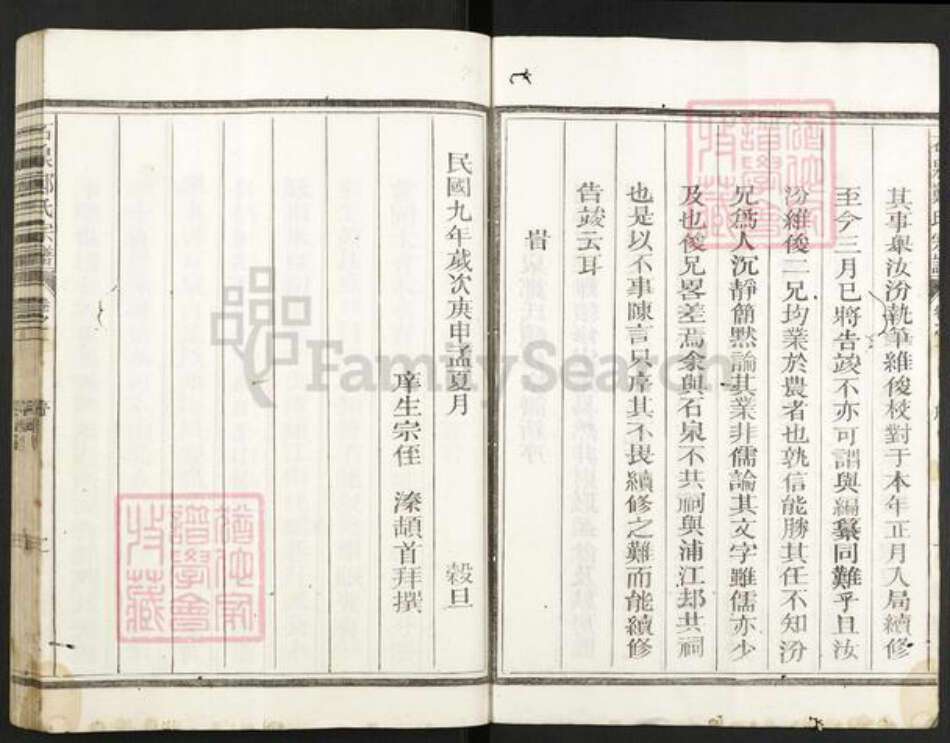 其事與汝汾執筆維俊校對于本年正月入局續修
至今三月巳將告竣不亦可謂與編纂同難乎且汝
汾維俊二兄均業於農者也孰信能勝其任不知汾
兄爲人沉靜簡默論其業非儒論其文字雖儒亦少
及也俊兄畧差焉余與石泉不共祠與浦江却共祠
也是以不事陳言只序其不畏續修之難而能續修
告竣云耳
旹
民國九年歲次庚申孟夏月 穀旦
庠生宗侄 溱頡首拜撰
FamilySearch